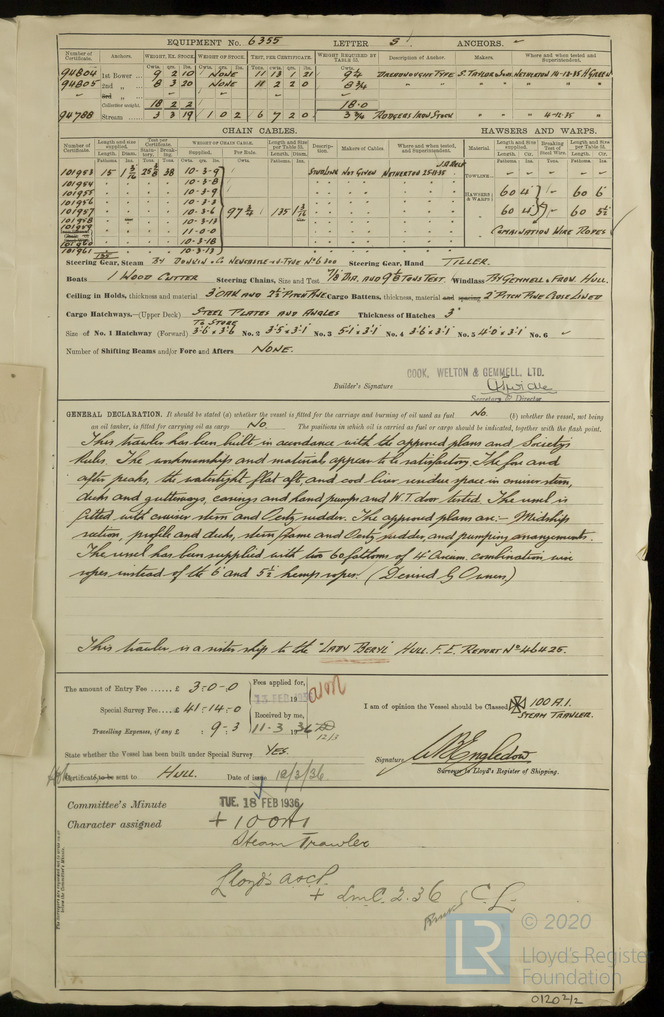 EQUIPMENT No. 6355 LETTER S ANCHORS.
Number of Certificate. Anchors. WEIGHT, EX. STOCK. WEIGHT OF STOCK. TEST, PER CERTIFICATE. WEIGHT REQUIRED BY TABLE 31. Description of Anchor. Makers. Where and when tested and Superintendent.
Cwts. qrs. lbs. Cwts. qrs. lbs. Tons. cwts. qrs. lbs. Cwts.
94804 1st Bower 9 2 10 NONE 11 13 1 21 9¼ DREADNOUGHT TYPE S. TAYLOR & SONS NETHERTON 14-12-35 H GREEN
94805 2nd " 8 3 20 NONE 8¾ " " " " "
3rd "
Collective weight. 18 2 2 18.0
94788 Stream 3 3 19 1 0 2 6 7 2 0 3¾ RODGERS IRON STOCK " " 4-12-35 "
CHAIN CABLES. HAWSERS AND WARPS.
Number of Certificate. Length and size supplied. Test per Certificate. WEIGHT OF CHAIN CABLE. Length and Size per Table 31. Description. Makers of Cables. Where and when tested, and Superintendent. Material. Length and Size supplied. Breaking Test of Steel Wire. Length and Size per Table 31.
Fathoms. Diam. Statutory. Breaking. Supplied. Per Rule. Fathoms. Diam.
101953 15 1 3/16 38 10-3-9 STUDLINK NOT GIVEN NETHERTON 25-11-35
101954 10-3-8 TOWLINE
101955 10-3-9 HAWSERS & WARPS 60 4" 60 6"
101956 10-3-3
101957 10-3-6 97¾ 135 1 3/16 60 4" 60 5½"
101958 10-3-13
101959 11-0-0 COMBINATION WIRE ROPES
101960 10-3-18
101961 10-3-13
135
Steering Gear, Steam BY DONKIN & CO NEWCASTLE-ON-TYNE No 6300 Steering Gear, Hand TILLER.
Boats 1 WOOD CUTTER Steering Chains, Size and Test 7/8 DIA. AND 9⅝ TONS TEST. Windlass HULL.
Ceiling in Holds, thickness and material 3" OAK AND 2½" PITCH PINE Cargo Battens, thickness, material and spacing 2" PITCH PINE CLOSE LINED
Cargo Hatchways.—(Upper Deck) STEEL PLATES AND ANGLES Thickness of Hatches 3"
TO STORE
Size of No. 1 Hatchway (Forward) 3'-6" x 3'-6" No. 2 3'-5" x 3'-1" No. 3 5'-1" x 3'-1" No. 4 3'-6" x 3'-1" No. 5 4'-0" x 3'-1" No. 6
Number of Shifting Beams and/or Fore and Afters NONE.
COOK, WELTON & GEMMELL, LTD.
Builder's Signature
Secretary & Director
GENERAL DECLARATION. It should be stated (a) whether the vessel is fitted for the carriage and burning of oil used as fuel No. (b) whether the vessel, not being
an oil tanker, is fitted for carrying oil as cargo No. The positions in which oil is carried as fuel or cargo should be indicated, together with the flash point.
This trawler has been built in accordance with the approved plans and Society's
Rules. The workmanship and material appear to be satisfactory. The fore and
after peaks, the watertight flat aft, and cod liver residue space in cruiser stern,
decks and gutterways, casings and hand pumps and W.T. door tested. The vessel is
fitted with cruiser stern and Oertz rudder. The approved plans are:- Midship
section, profile and decks, stern frame and Oertz rudder, and pumping arrangements.
The vessel has been supplied with two 60 fathoms of 4" circum. combination wire
ropes instead of the 6" and 5½" hemp ropes. (Desired by Owners)
This trawler is a sister ship to the "LADY BERYL" HULL F.E. REPORT No 46425.
The amount of Entry Fee ...... £ 3:0-0 Fees applied for,
Special Survey Fee.... £ 41:14:0 Received by me,
Travelling Expenses, if any £ : 9-3 11-3-1936
12/3
I am of opinion the Vessel should be Classed 100 A.1.
STEAM TRAWLER.
State whether the Vessel has been built under Special Survey YES.
Signature W R Engledow
Surveyor to Lloyd's Register of Shipping.
Certificate to be sent to HULL. Date of issue 12/3/36
Committee's Minute TUE. 18 FEB 1936
Character assigned + 100A1
Steam Trawler
Lloyd's a&cp.
+ LMC. 2.36 C.L.
© 2020
LR Lloyd's Register Foundation
0120 2/2